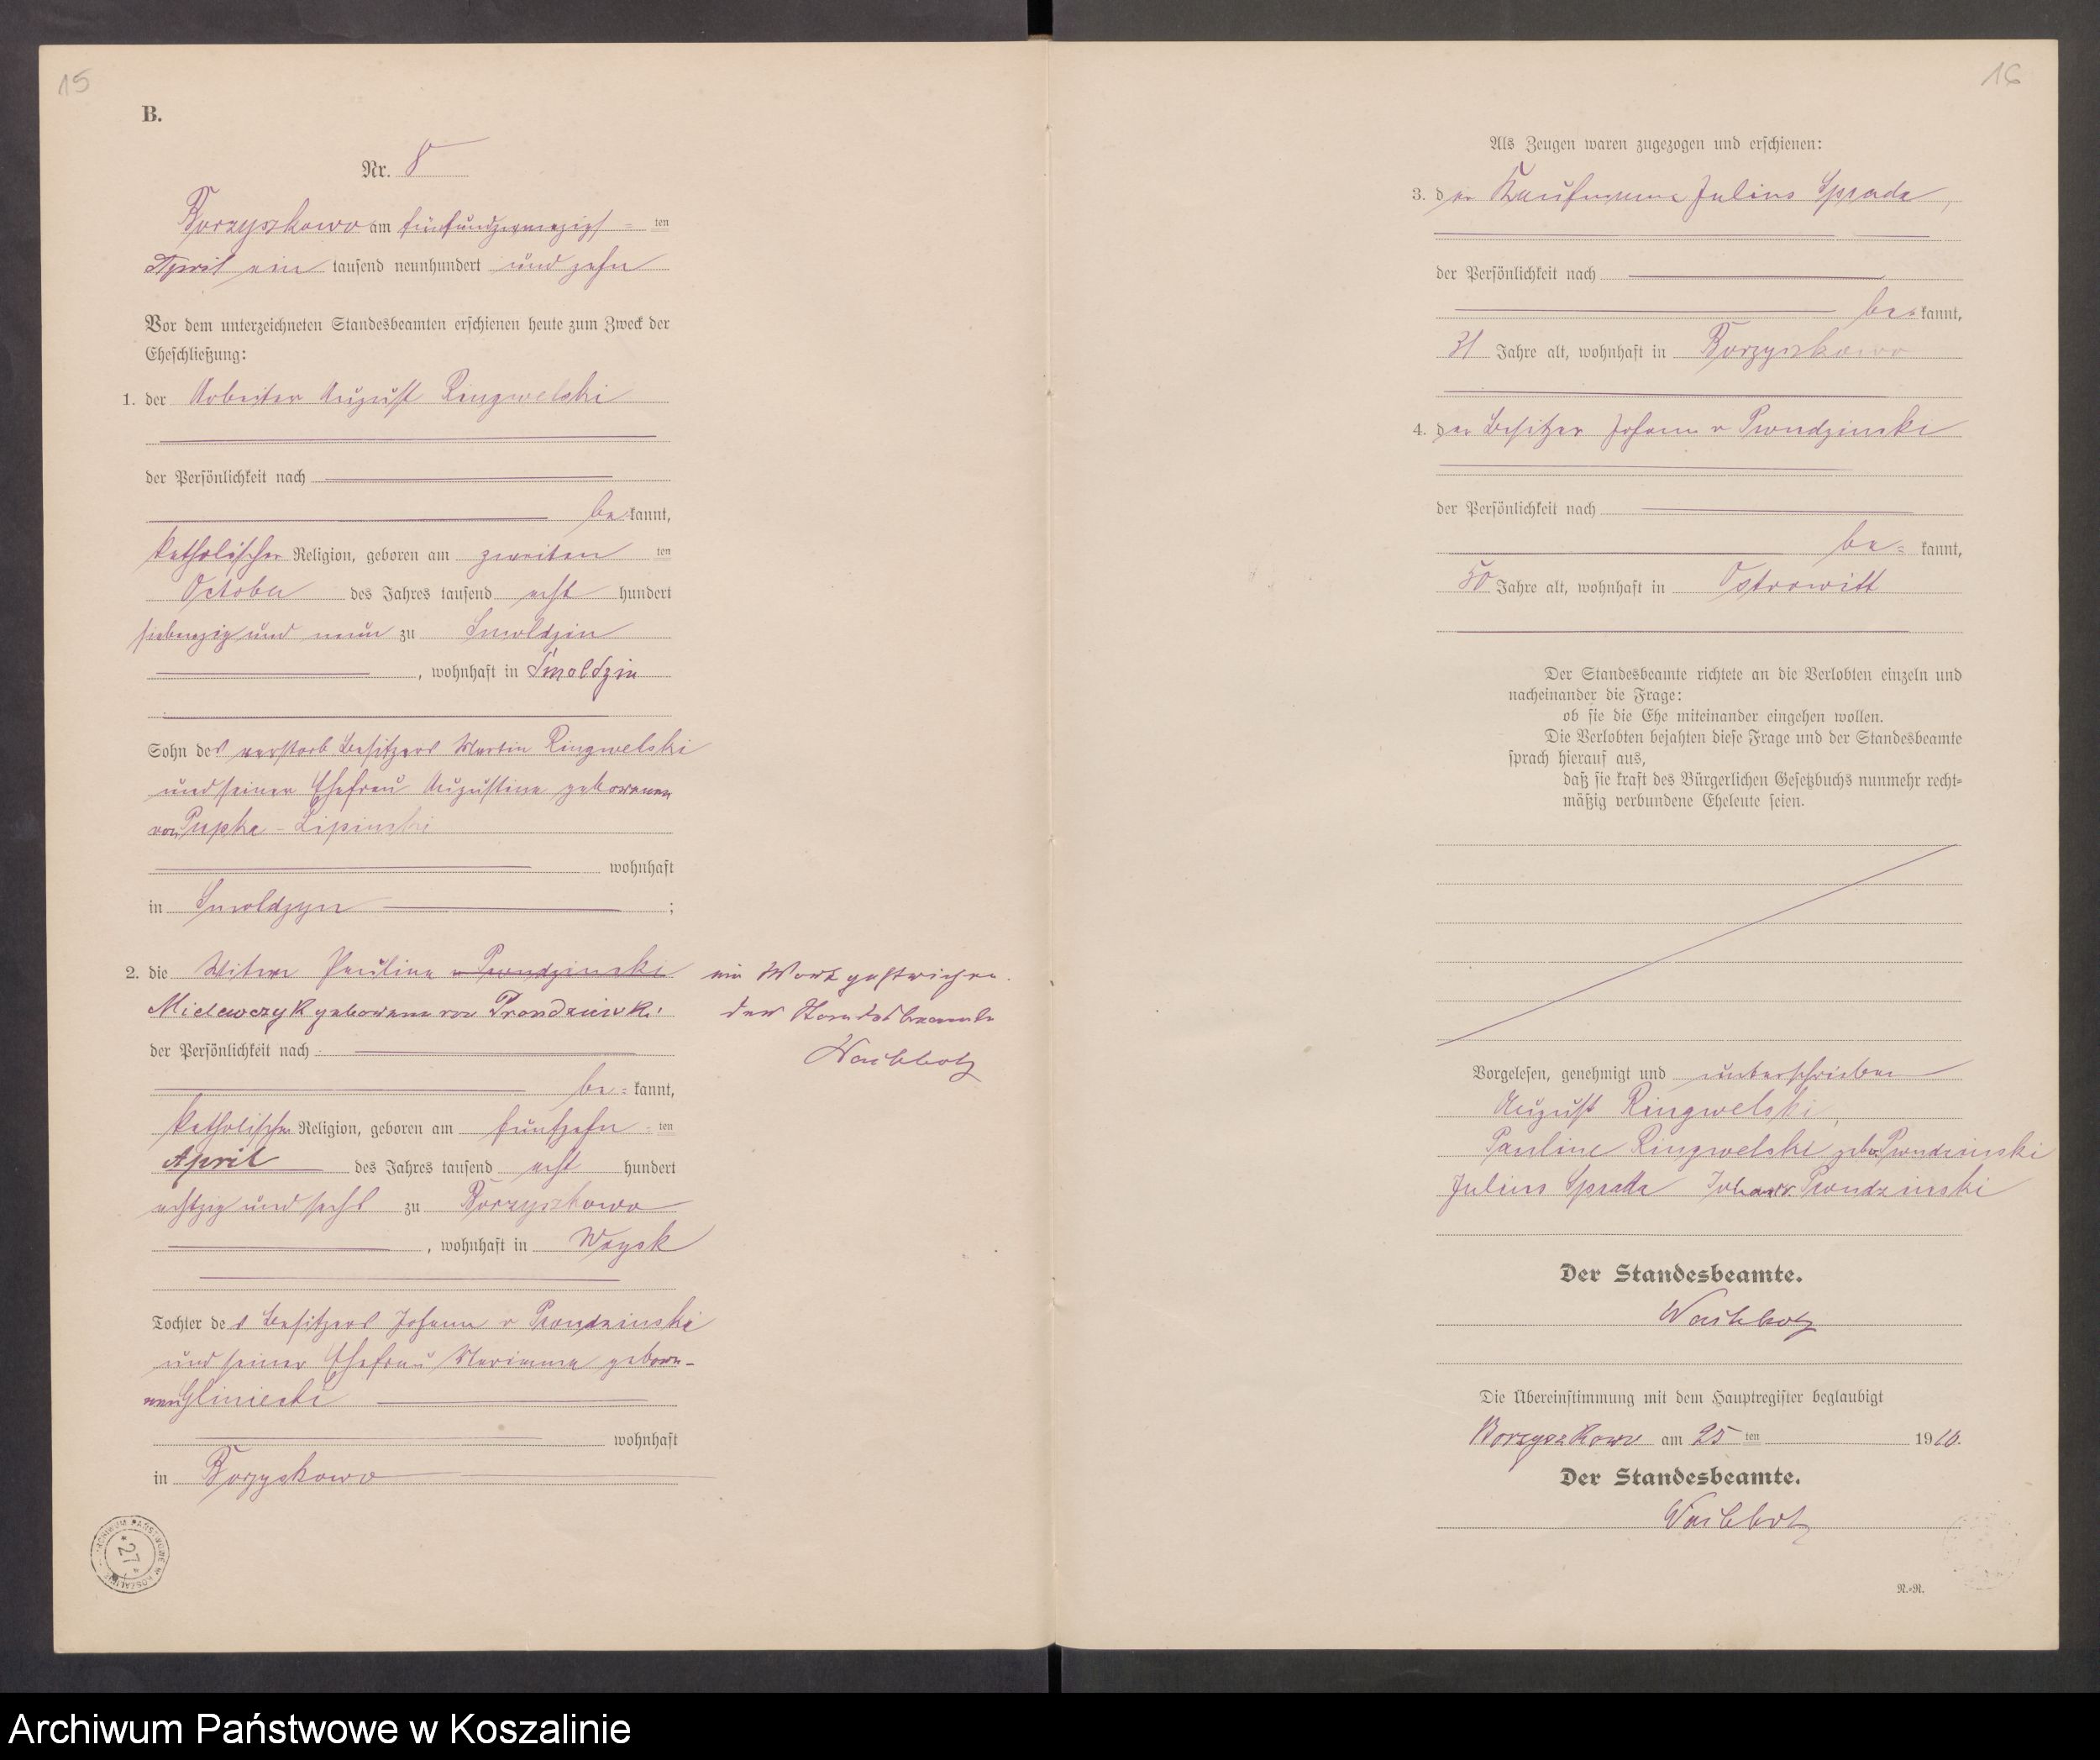 15
B.
Nr. 8
Borzyszkowo am fünfundzwanzigs ten
April ein tausend neunhundert und zehn
Vor dem unterzeichneten Standesbeamten erschienen heute zum Zweck der
Eheschließung:
1. der Arbeiter August Ringwelski
der Persönlichkeit nach
be kannt,
katholischer Religion, geboren am zweiten ten
October des Jahres tausend acht hundert
siebenzig und neun zu Smoldzin
, wohnhaft in Smoldzin
Sohn des verstorb Besitzers Martin Ringwelski
und seiner Ehefrau Augustine geborenen
von Pupka - Lipinski
wohnhaft
in Smoldzyn ;
2. die Witwe Pauline v Prondzinski
Mielewczyk geborene von Prondzinski
der Persönlichkeit nach
be- kannt,
katholischer Religion, geboren am fünfzehn ten
April des Jahres tausend acht hundert
achtzig und sechs zu Borzyszkowo
, wohnhaft in Woysk
Tochter des Besitzers Johann v Prondzinski
und seiner Ehefrau Marianna gebore-
nen Gliniecki
wohnhaft
in Borzyskowo
ein Wort gestrichen.
Der Standesbeamte
ARCHIWUM PAŃSTWOWE W KOSZALINIE
27
16
Als Zeugen waren zugezogen und erschienen:
3. der Kaufmann Julius Sprada,
der Persönlichkeit nach
be- kannt,
31 Jahre alt, wohnhaft in Borzyszkowo
4. der Besitzer Johann v Prondzinski
der Persönlichkeit nach
be- kannt,
50 Jahre alt, wohnhaft in Ostrowitt
Der Standesbeamte richtete an die Verlobten einzeln und
nacheinander die Frage:
ob sie die Ehe miteinander eingehen wollen.
Die Verlobten bejahten diese Frage und der Standesbeamte
sprach hierauf aus,
daß sie kraft des Bürgerlichen Gesetzbuchs nunmehr recht-
mäßig verbundene Eheleute seien.
Vorgelesen, genehmigt und unterschrieben
August Ringwelski,
Pauline Ringwelski geb v Prondzinski
Julius Sprada Johann v. Prondzinski
Der Standesbeamte.
Die Übereinstimmung mit dem Hauptregister beglaubigt
Borzyszkowo am 25 ten 1910.
Der Standesbeamte.
N.-N.
Archiwum Państwowe w Koszalinie